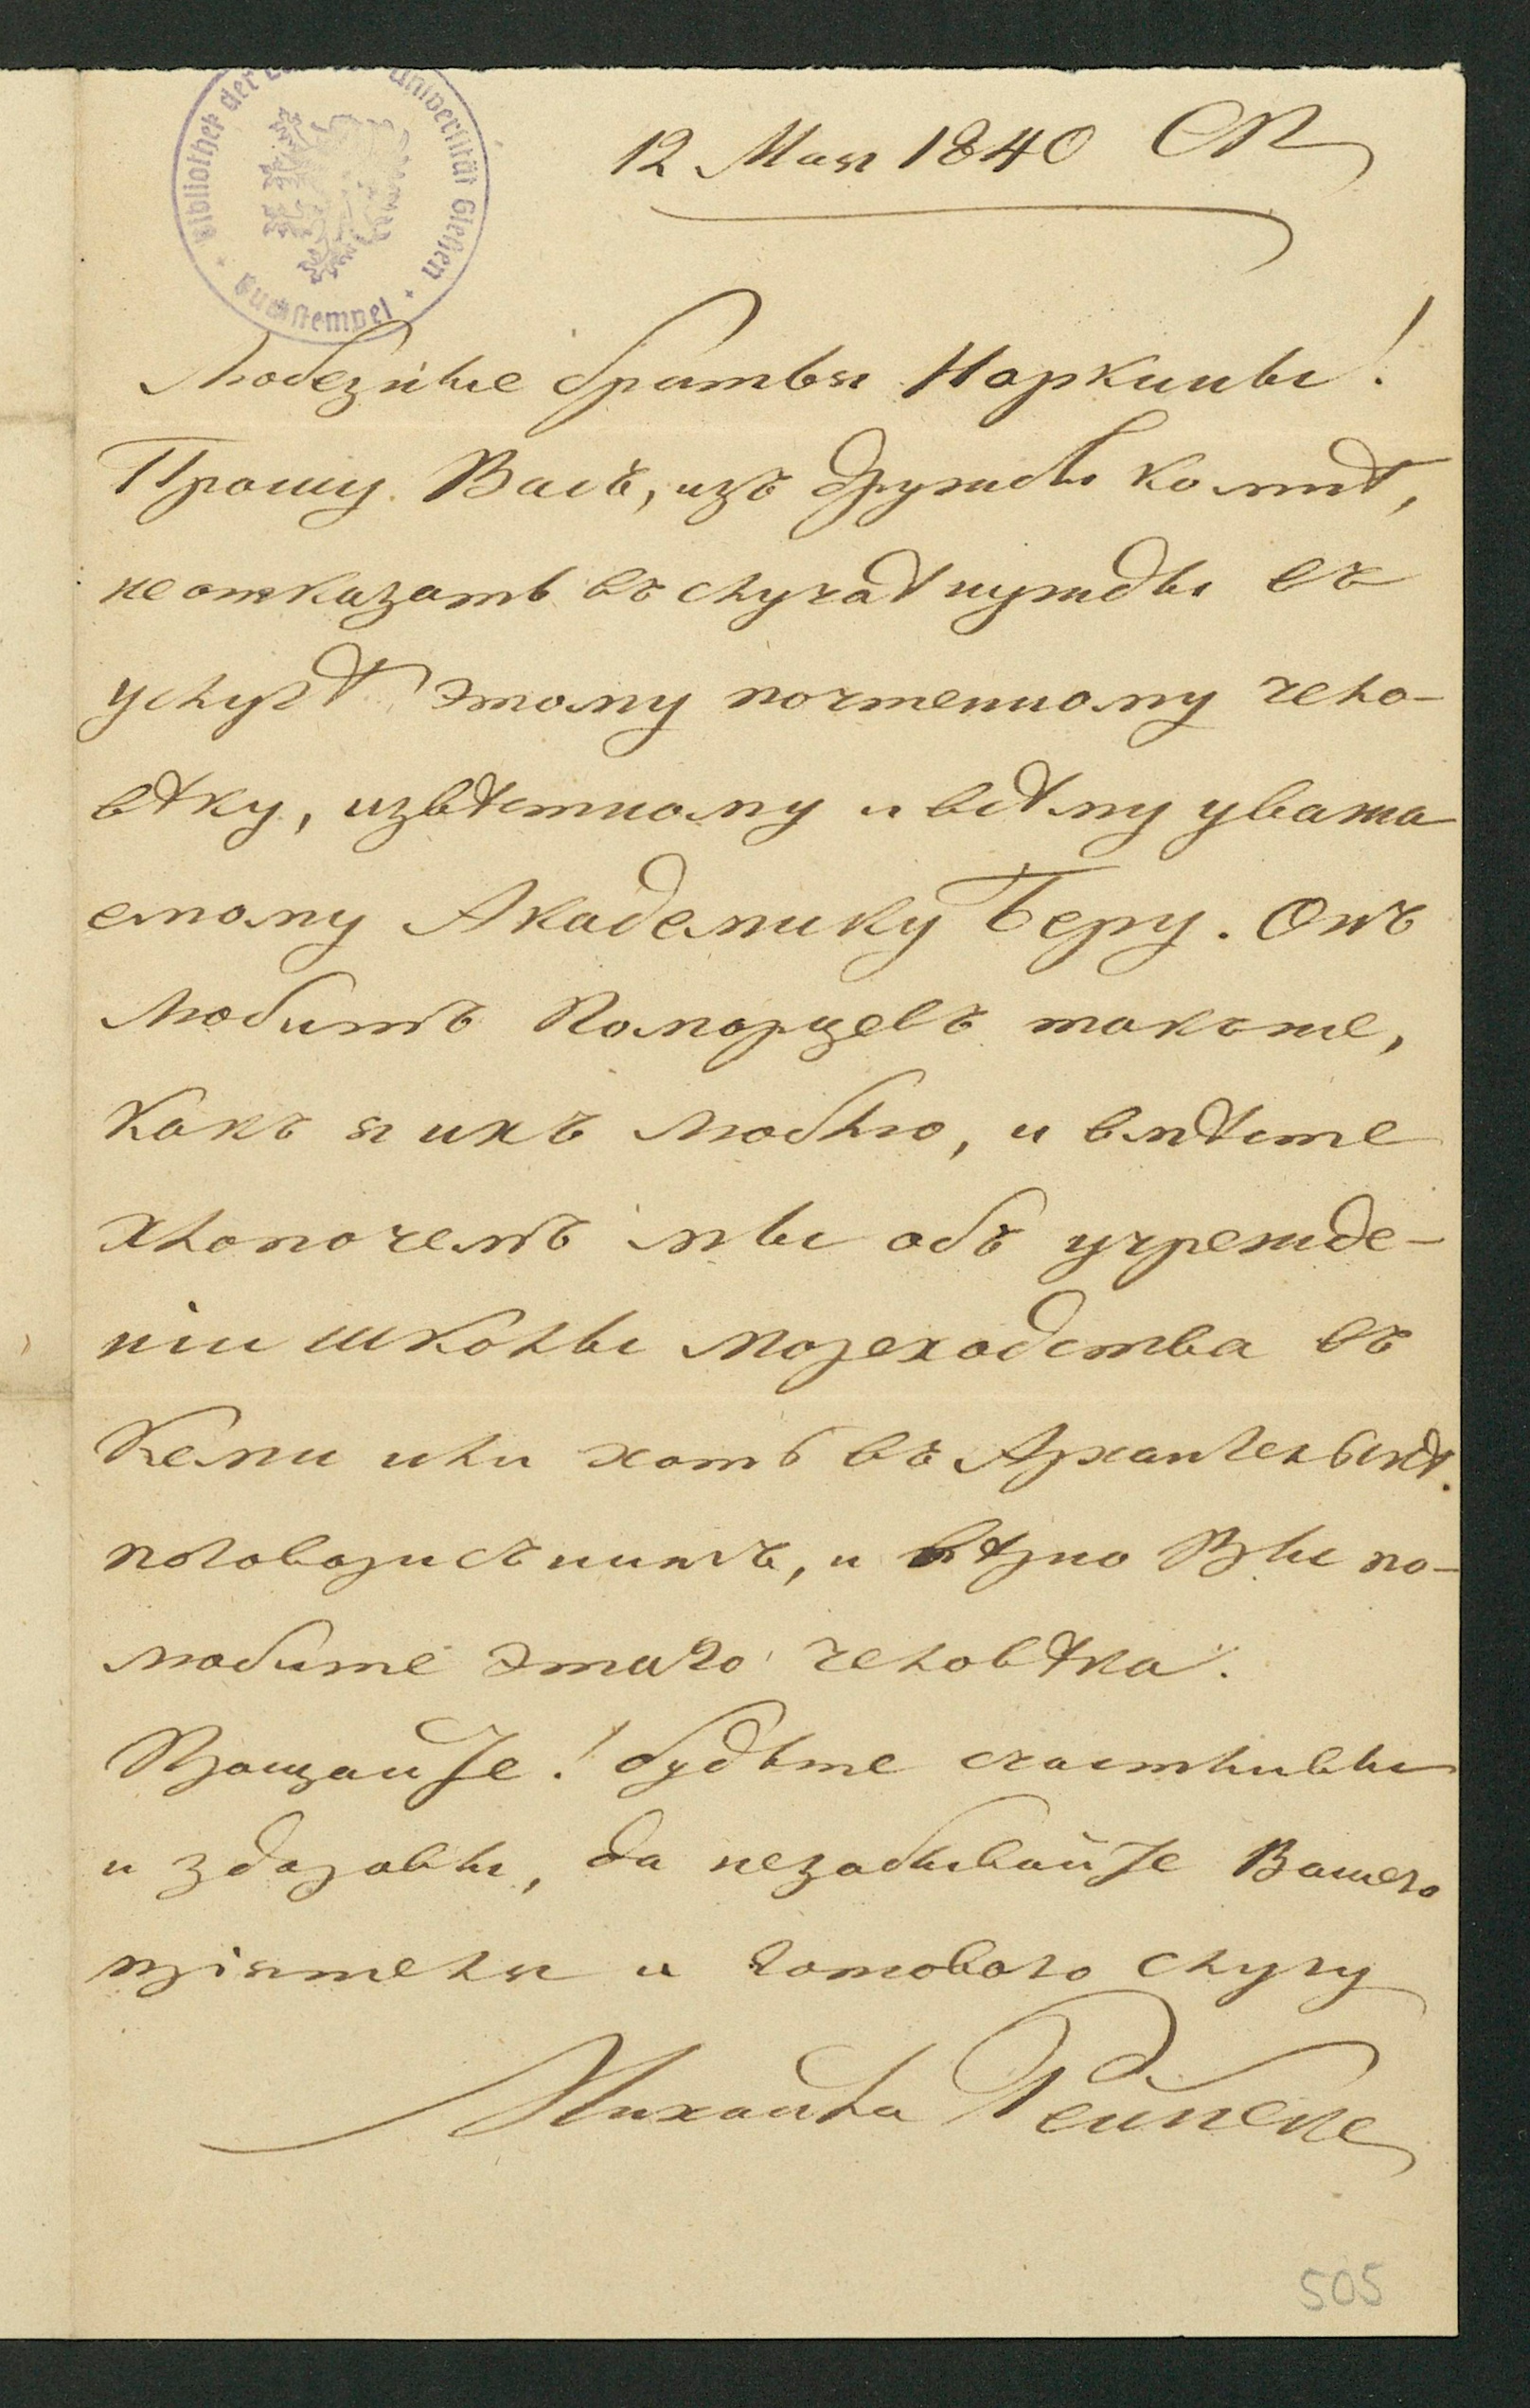 Bibliothek der Univertität Gießen
Buchstempel
12 Мая 1840 СП
Любезные братья Норкины!
Прошу Васъ, изъ дружбы ко мнѣ,
не отказать въ случаѣ нужды въ
услугѣ этому почтенному чело-
вѣку, извѣстному и всѣму уважа
емому Академику Беру. Онъ
любитъ Поморцевъ такъже,
какъ я ихъ люблю, и вмѣсте
хлопочемъ мы объ учрежде-
ніи школы мореходства въ
Кеми или хоть въ Архангельскѣ.
поговори съ нимъ, и вѣрно Вы по-
любите этаго человѣка.
Прощайте! будьте счастливы
и здоровы, да незабывайте Вашего
пріятеля и готоваго слугу
Михайла Рейнеке
505